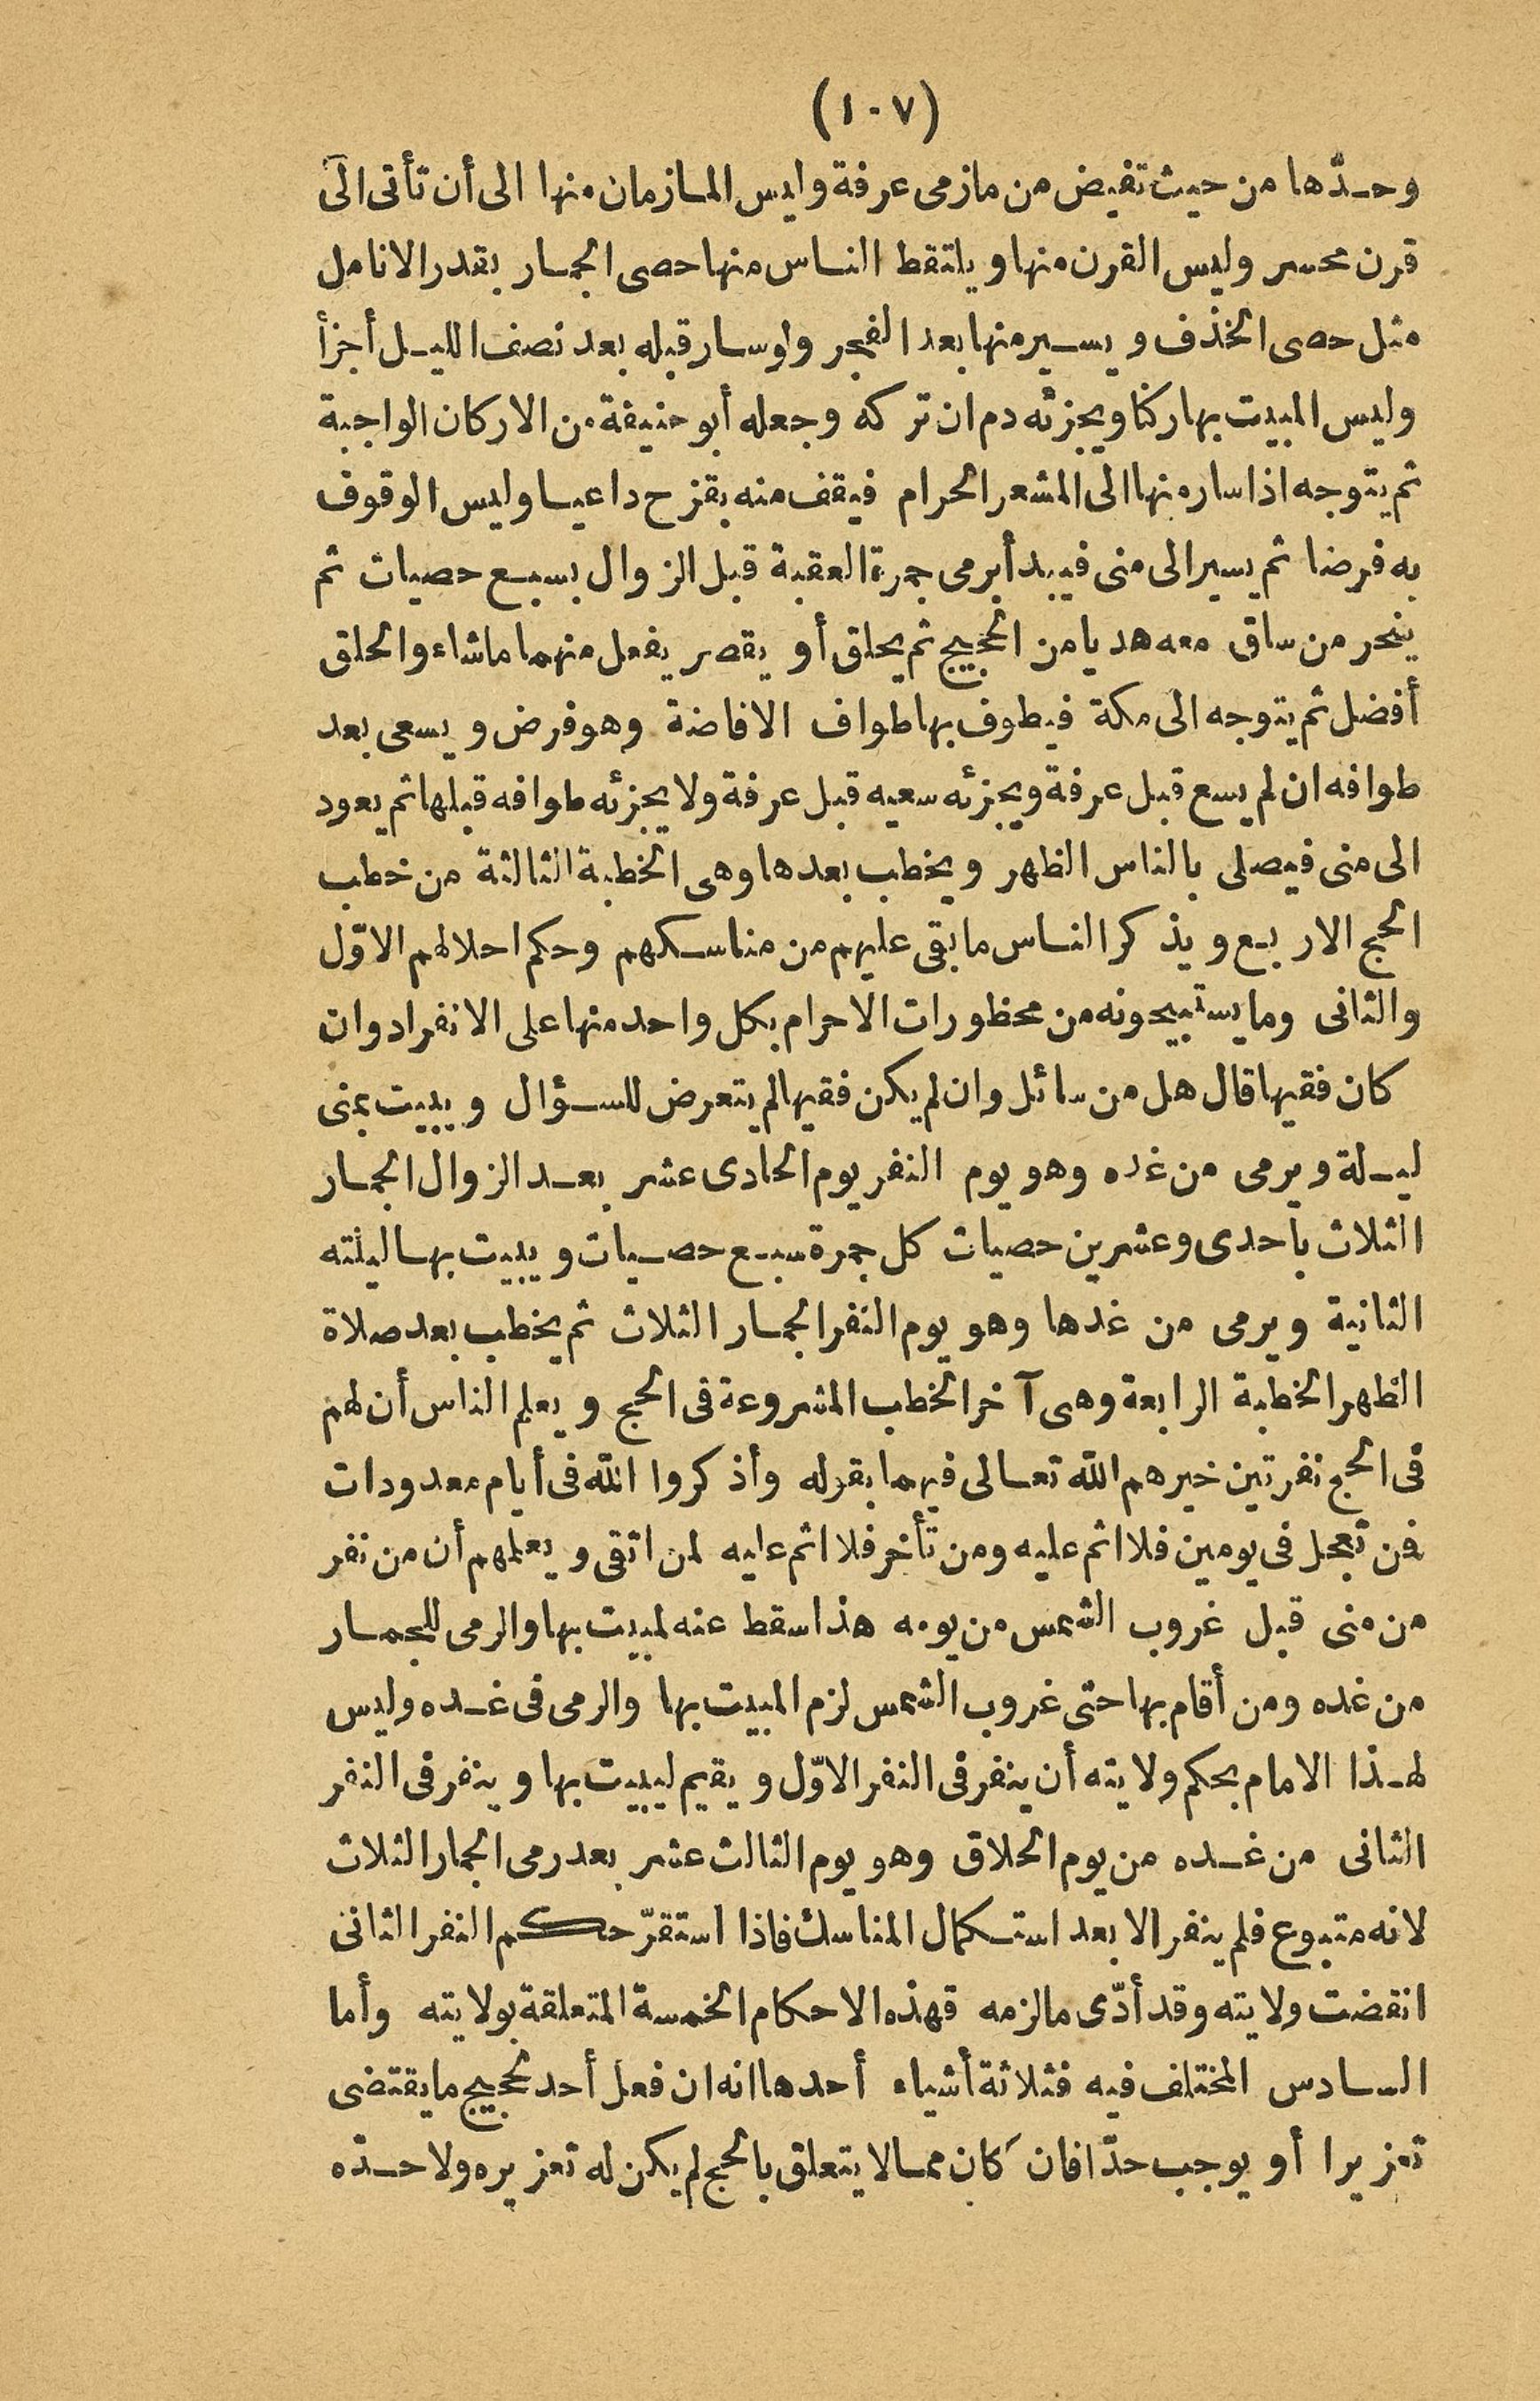 (١٠٧)
وحدّها من حيث تفيض من مازمى عرفة وليس المازمان منها الى أن تأتى الى
قرن محسر وليس القرن منها ويلتقط الناس منها حصى الجمار بقدر الانامل
مثل حصى الخذف ويسير منها بعد الفجر ولو سار قبله بعد نصف الليل أجزأ
وليس المبيت بها ركنا ويجزئه دم ان تركه وجعله أبو حنيفة من الاركان الواجبة
ثم يتوجه اذا سار منها الى المشعر الحرام فيقف منه بقزح داعيا وليس الوقوف
به فرضا ثم يسير الى منى فيبدأ برمى جمرة العقبة قبل الزوال بسبع حصيات ثم
ينحر من ساق معه هديا من الحجيج ثم يحلق أو يقصر يفعل منهما ما شاء والحلق
أفضل ثم يتوجه الى مكة فيطوف بها طواف الافاضة وهو فرض ويسعى بعد
طوافه ان لم يسع قبل عرفة ويجزئه سعيه قبل عرفة ولا يجزئه طوافه قبلها ثم يعود
الى منى فيصلى بالناس الظهر ويخطب بعدها وهى الخطبة الثالثة من خطب
الحج الاربع ويذكر الناس ما بقى عليهم من مناسكهم وحكم احلالهم الاوّل
والثانى وما يستبيحونه من محظورات الاحرام بكل واحد منها على الانفراد وان
كان فقيها قال هل من سائل وان لم يكن فقيها لم يتعرض للسؤال ويبيت بمنى
ليلة ويرمى من غده وهو يوم النفر يوم الحادى عشر بعد الزوال الجمار
الثلاث باحدى وعشرين حصيات كل جمرة سبع حصيات ويبيت بها ليلته
الثانية ويرمى من غدها وهو يوم النفر الجمار الثلاث ثم يخطب بعد صلاة
الظهر الخطبة الرابعة وهى آخر الخطب المشروعة فى الحج ويعلم الناس أن لهم
فى الحج نفرتين خيرهم الله تعالى فيهما بقوله وأذكروا الله فى أيام معدودات
فمن تعجل فى يومين فلا اثم عليه ومن تأخر فلا اثم عليه لمن اتقى ويعلمهم أن من نفر
من منى قبل غروب الشمس من يومه هذا سقط عنه لمبيت بها والرمى للجمار
من غده ومن أقام بها حتى غروب الشمس لزم المبيت بها والرمى فى غده وليس
لهذا الامام بحكم ولايته أن ينفر فى النفر الاوّل ويقيم ليبيت بها وينفر فى النفر
الثانى من غده من يوم الحلاق وهو يوم الثالث عشر بعد رمى الجمار الثلاث
لانه متبوع فلم ينفر الا بعد استكمال المناسك فاذا استقرّ حكم النفر الثانى
انقضت ولايته وقد أدّى ما لزمه فهذه الاحكام الخمسة المتعلقة بولايته وأما
السادس المختلف فيه فثلاثة أشياء أحدها انه ان فعل أحد لحجيج ما يقتضى
تعزيرا أو يوجب حدّا فان كان مما لا يتعلق بالحج لم يكن له تعزيره ولا حدّه